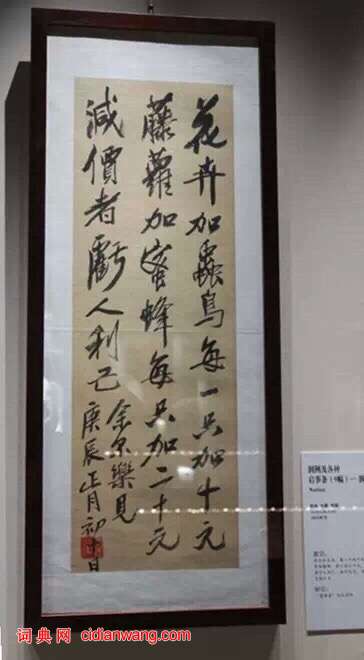 花卉加蟲鳥每一只加十元
藤蘿加蜜蜂每只加二十元
減價者虧人利己
余不樂見
庚辰正月初十日
及各种
启事条（9幅）一
Notices
词典网 cidianwang.com